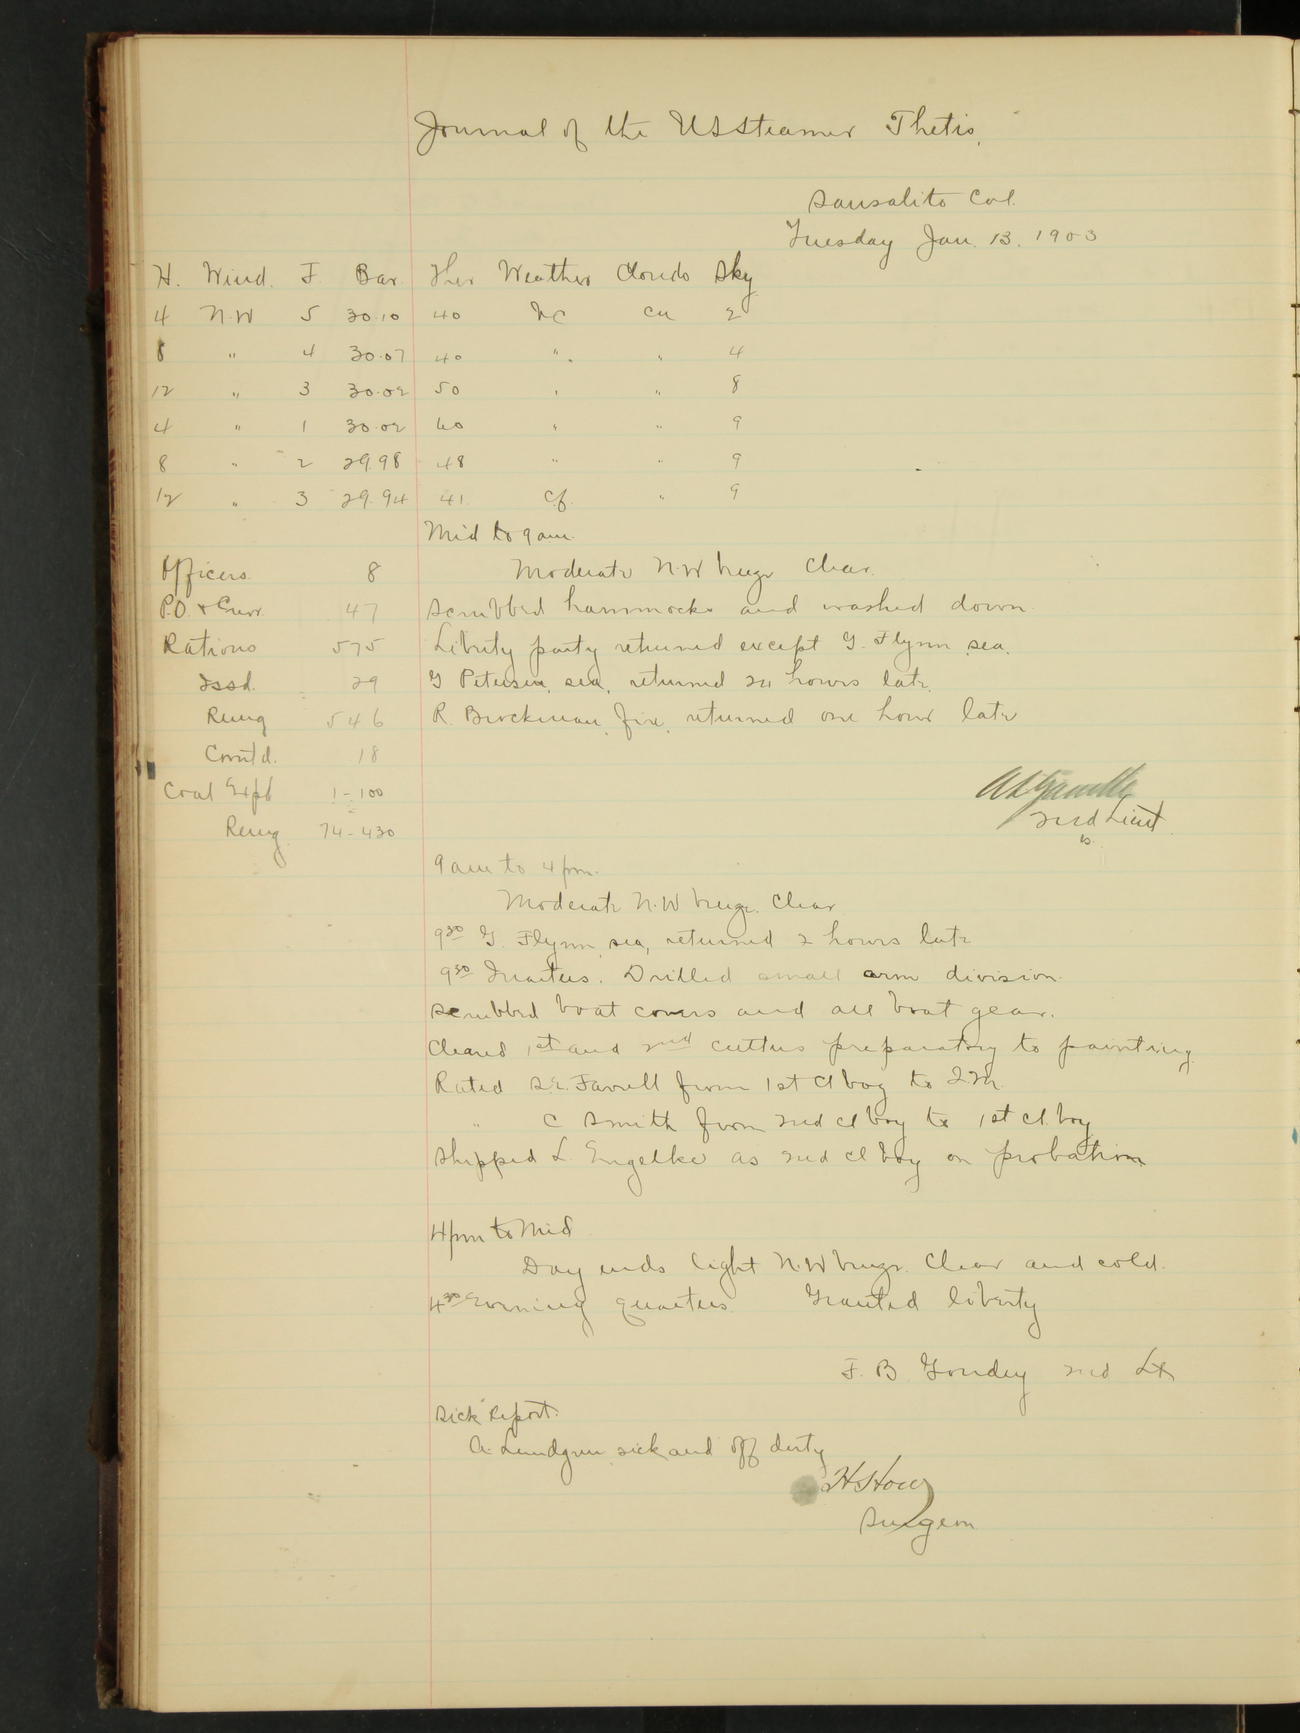 Journal of the US Steamer Thetis,
Sausalito Cal.
Tuesday Jan. 13. 1903
H. Wind. F. Bar. Ther Weather Clouds Sky
4 N.W 5 30.10 40 bc cu 2
8 " 4 30.07 40 " " 4
12 " 3 30.02 50 " " 8
4 " 1 30.02 60 " " 9
8 " 2 29.98 48 " " 9
12 " 3 29.94 41. cf. " 9
Mid to 9 am.
Officers 8 Moderate N.W breeze Clear.
P.O. & Crew 47 Scrubbed hammocks and washed down
Rations 575 Liberty party returned except G. Flynn sea.
Issd. 29 G Petersen, sea, returned 24 hours late.
Remg 546 R. Brockman, fire, returned one hour late
Comtd. 18
Coal Expd 1-100
Remg 74-430 2nd Lieut
9 am to 4 pm.
Moderate N.W breeze. Clear
9³⁰ G. Flynn, sea, returned 2 hours late
9³⁰ Quarters. Drilled small arm division.
Scrubbed boat covers and all boat gear.
Cleared 1st and 2nd cutters preparatory to painting
Rated Farrell from 1st cl boy to
" C Smith from 2nd cl boy to 1st cl. boy
Shipped L. Engelke as 2nd cl boy on probation
4 pm to Mid
Day ends light N.W breeze. Clear and cold.
4³⁰ Evening quarters. Granted liberty
F. B. Goudey 2nd Lt
Sick Report.
A. Lundgren, sick and off duty
Surgeon